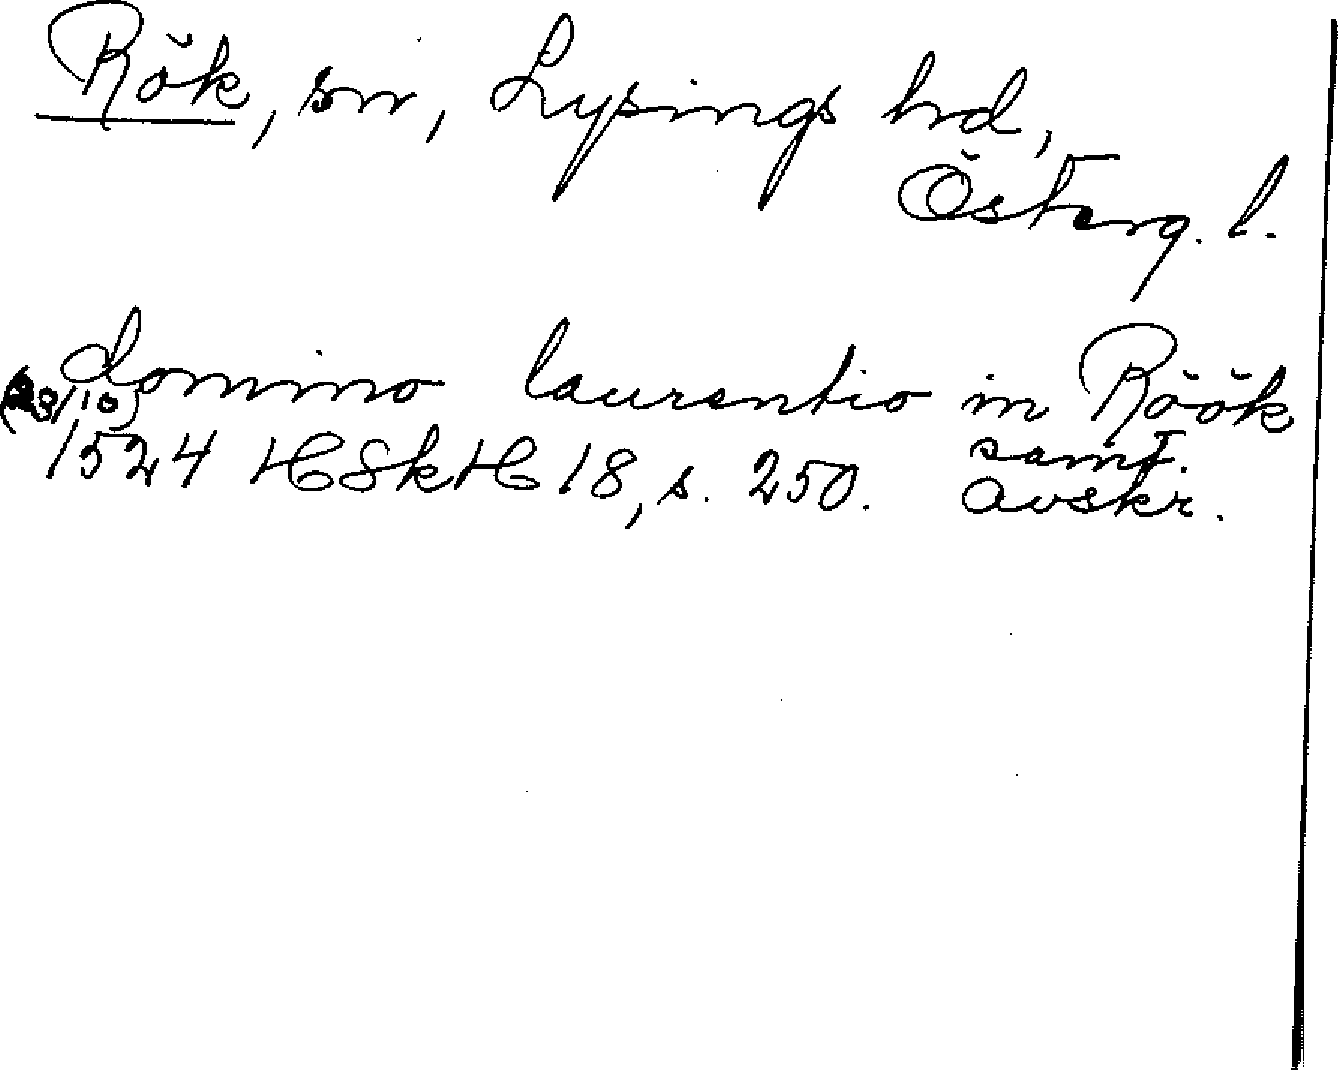 Rök, sn, Lysings hd,
Österg. l.
domino laurentio in Röök
(28/10)
1524 HSkH 18, s. 250. samt. avskr.